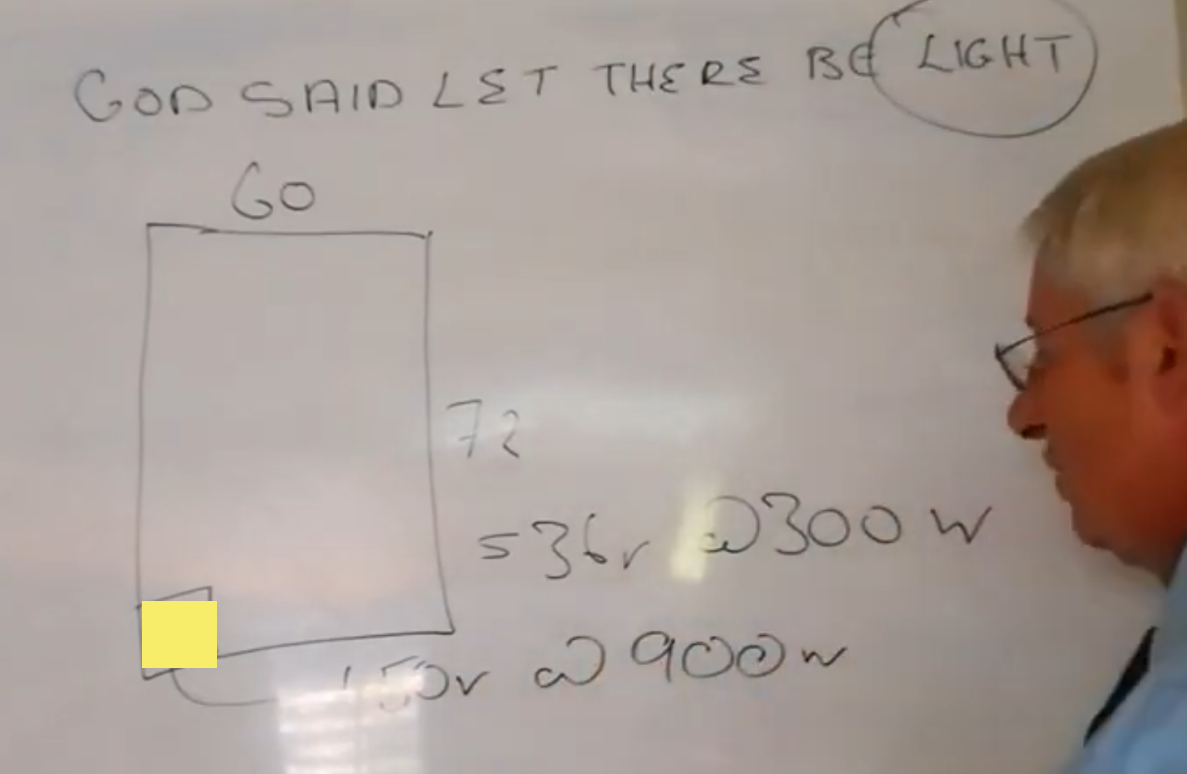 GOD SAID LET THERE BE LIGHT
60
72
=36v @300W
150v @ 900w